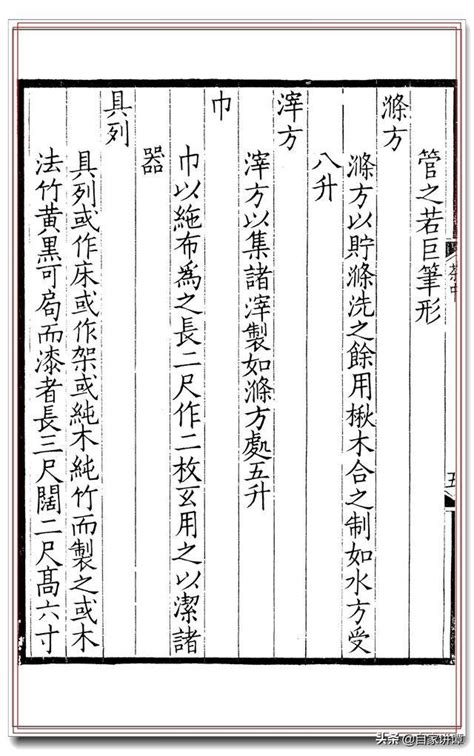 管之若巨筆形
滌方
滌方以貯滌洗之餘用楸木合之制如水方受
八升
滓方
滓方以集諸滓製如滌方處五升
巾
巾以絁布為之長二尺作二枚㸦用之以潔諸
器
具列
具列或作床或作架或純木純竹而製之或木
法竹黃黑可扃而漆者長三尺闊二尺高六寸
头条 @自家讲谭